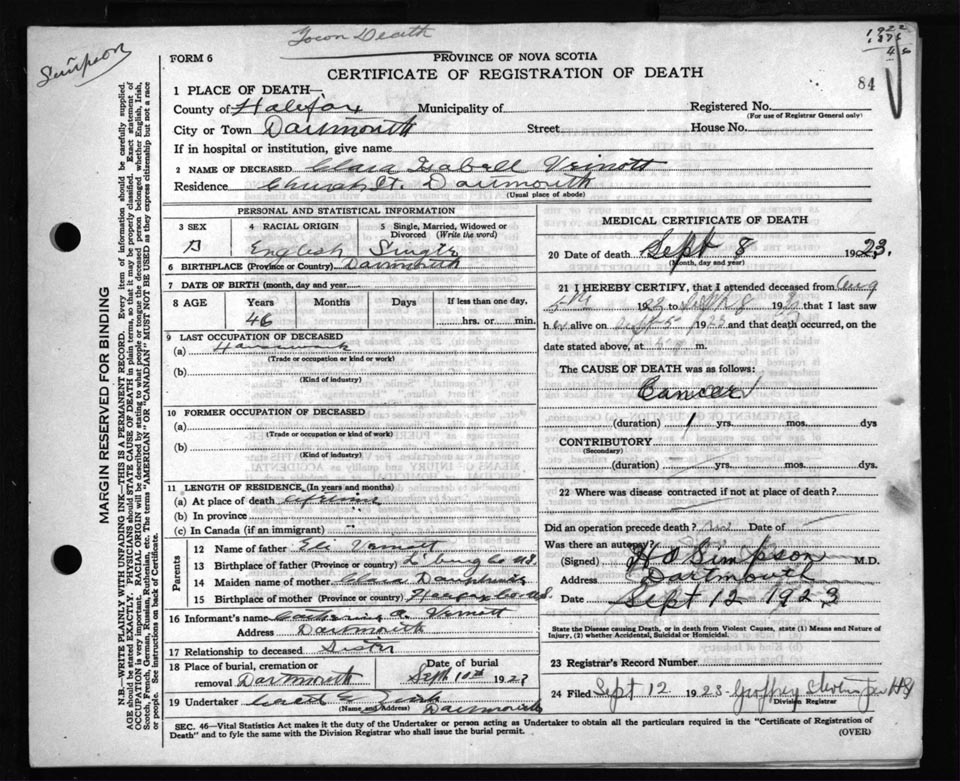 Town Death
Simpson
1922
84
FORM 6
PROVINCE OF NOVA SCOTIA
CERTIFICATE OF REGISTRATION OF DEATH
1 PLACE OF DEATH—
County of Halifax Municipality of Registered No.
(For use of Registrar General only)
City or Town Dartmouth Street House No.
If in hospital or institution, give name
2 NAME OF DECEASED Clara Isabell Veinott
Residence Church St. Dartmouth
(Usual place of abode)
PERSONAL AND STATISTICAL INFORMATION
3 SEX 4 RACIAL ORIGIN 5 Single, Married, Widowed or Divorced (Write the word)
English Single
6 BIRTHPLACE (Province or Country) Dartmouth
7 DATE OF BIRTH (month, day and year)
8 AGE Years Months Days If less than one day,
46 hrs. or min.
9 LAST OCCUPATION OF DECEASED
(a) Housework
(Trade or occupation or kind or work)
(b)
(Kind of industry)
10 FORMER OCCUPATION OF DECEASED
(a)
(Trade or occupation or kind of work)
(b)
(Kind of industry)
11 LENGTH OF RESIDENCE (In years and months)
(a) At place of death Lifetime
(b) In province "
(c) In Canada (if an immigrant) "
Parents
12 Name of father Eli
13 Birthplace of father (Province or Country) L'burg Co N.S.
14 Maiden name of mother Clara
15 Birthplace of mother (Province or Country) Halifax Co N.S.
16 Informant's name Catherine A.
Address Dartmouth
17 Relationship to deceased Sister
18 Place of burial, cremation or removal Dartmouth Date of burial Sept 10th 1923
19 Undertaker
(Name and Address) Dartmouth
MEDICAL CERTIFICATE OF DEATH
20 Date of death Sept 8 1923.
(Month, day and year)
21 I HEREBY CERTIFY, that I attended deceased from Aug
5th 1923 to Sept 8 1923 that I last saw
her alive on Sept 5 1923 and that death occurred, on
date stated above, at m.
The CAUSE OF DEATH was as follows:
Cancer
(duration) 1 yrs. mos. dys
CONTRIBUTORY
(Secondary)
(duration) yrs. mos. ds.
22 Where was disease contracted if not at place of death?
Did an operation precede death? Date of
Was there an autopsy?
(Signed) H O Simpson M.D.
Address Dartmouth
Date Sept 12 1923
State the Disease causing Death, or in death from Violent Causes, state (1) Means and Nature of
Injury, (2) whether Accidental, Suicidal or Homicidal.
23 Registrar's Record Number
24 Filed Sept 12 1923 Geoffrey
Division Registrar
SEC. 46—Vital Statistics Act makes it the duty of the Undertaker or person acting as Undertaker to obtain all the particulars required in the "Certificate of Registration of
Death" and to fyle the same with the Division Registrar who shall issue the burial permit.
(OVER)
MARGIN RESERVED FOR BINDING
N.B.—WRITE PLAINLY WITH UNFADING INK—THIS IS A PERMANENT RECORD. Every item of information should be carefully supplied.
AGE should be stated EXACTLY. PHYSICIANS should STATE CAUSE OF DEATH in plain terms, so that it may be properly classified. Exact statement of
OCCUPATION is very important. RACIAL ORIGIN will be described by stating to what people or tongue the deceased person belonged whether English, Irish,
Scotch, French, German, Russian, Ruthenian, etc. The terms "AMERICAN" OR "CANADIAN" MUST NOT BE USED as they express citizenship but not a race
or people. See instructions on back of Certificate.